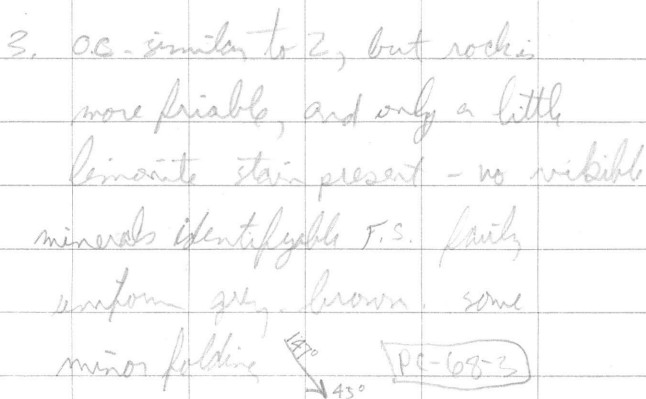 3. O.C. - similar to 2, but rock is
more friable, and only a little
limonite stain present - no visible
minerals identifyable F.S. fairly
uniform grey-brown. some
minor folding 147° 45° PC-68-3